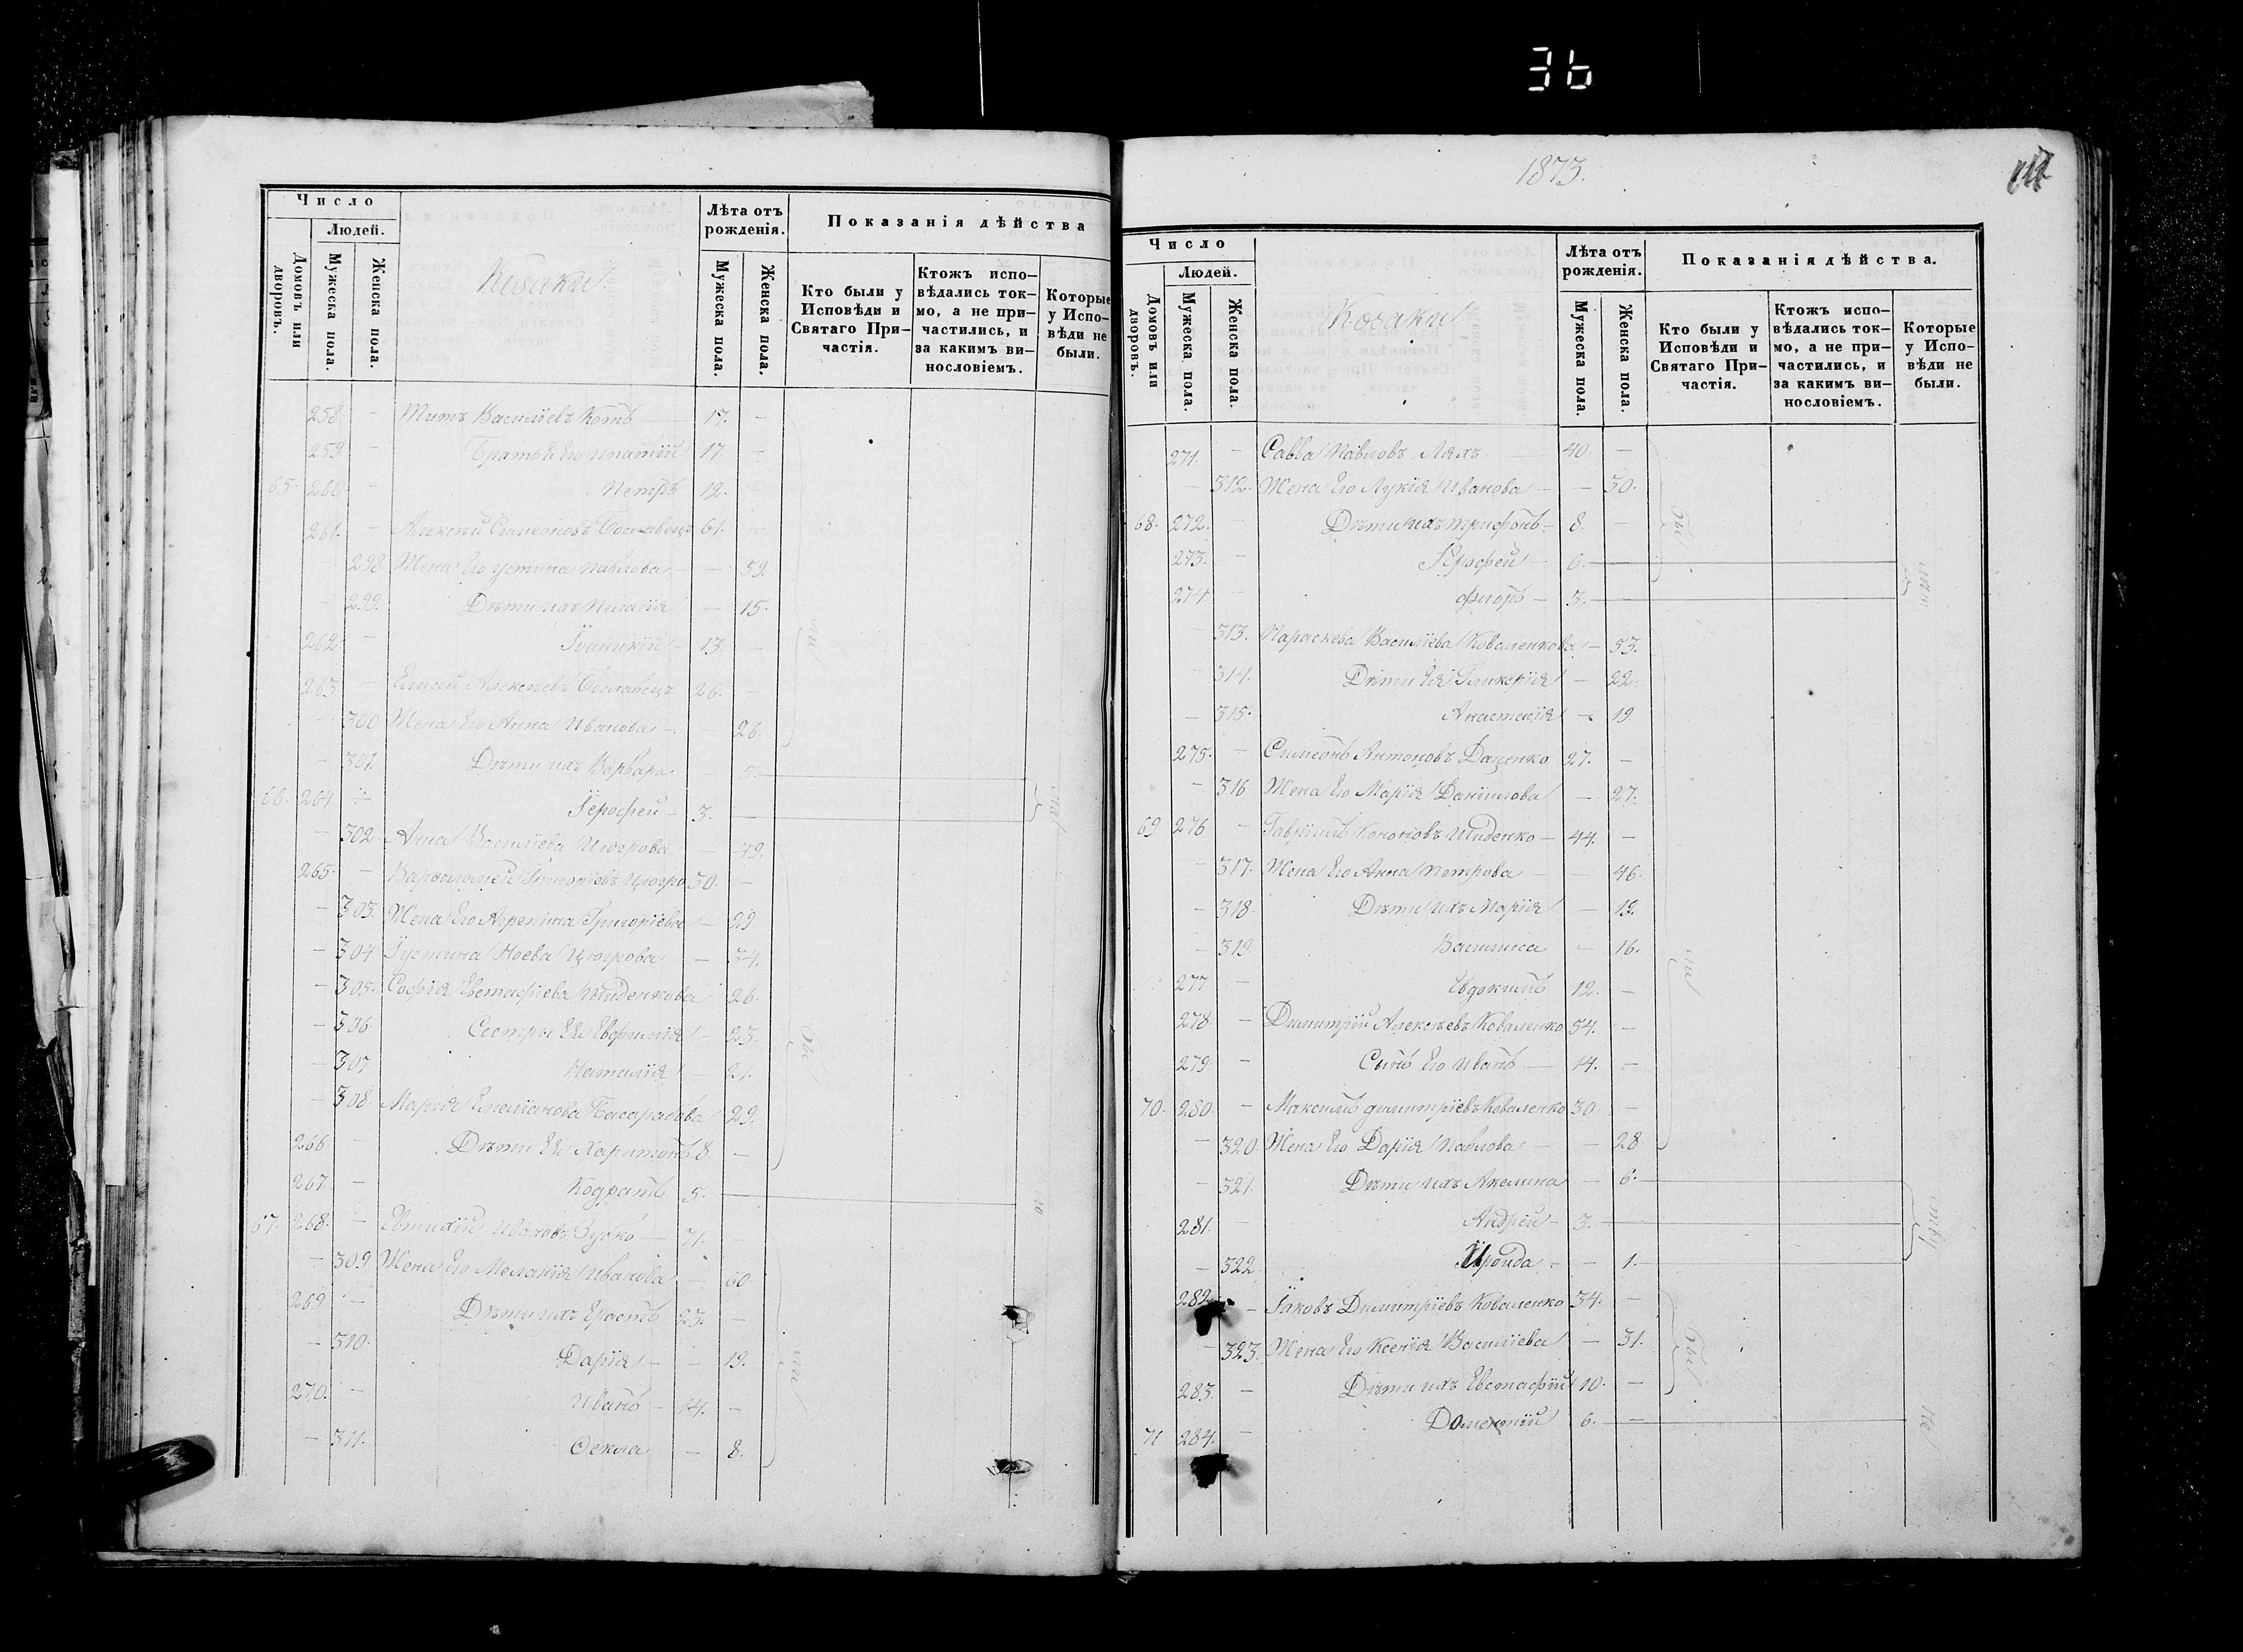 36
Число
Людей.
Домовъ или дворовъ.
Мужеска пола.
Женска пола.
Козаки
Лѣта отъ рожденія.
Мужеска пола.
Женска пола.
Показанія дѣйства
Кто были у Исповѣди и Святаго Причастія.
Ктожъ исповѣдались токмо, а не причастились, и за какимъ винословіемъ.
Которые у Исповѣди не были.
258 — Титъ Василіевъ Котъ 17. —
259 — Братья Его Ипатій 17. —
65. 260 — Петръ 12. —
261. — Алексѣй Симеоновъ 61. —
— 298 Жена Его Устина Павлова — 59.
— 299. Дѣти ихъ Пелагія — 15.
262. — Іоаникій 13. —
263 — Елисей Алексѣевъ 26. —
— 300 Жена Его Анна Иванова — 26.
— 301. Дѣти ихъ Варвара 5.
66. 264 — Іерофей — 3. —
— 302 Анна Василіева — 49.
265. — Варфоломей Григоріевъ 30. —
— 303. Жена Его Агрепина Григоріева — 29
— 304 Іустина Ноева — 34.
— 305. Софія Евстафіева Шиденкова 26.
— 306 Сестры Ея Евфимія — 23.
— 307 Наталія — 21.
— 308. Марія Емиліанова 29.
266 — Дѣти Ея Харитонъ 8. —
267 — Кодратъ 5. —
67. 268. — Евтихій Ивановъ Зубко — 71. —
— 309 Жена Его Меланія Иванова — 60
269 — Дѣти ихъ Ерастъ 23. —
— 310. Дарія — — 19.
270. — Иванъ — 14. —
— 311. Ѳекла — 8.
1873.
Число
Людей.
Домовъ или дворовъ.
Мужеска пола.
Женска пола.
Козаки
Лѣта отъ рожденія.
Мужеска пола.
Женска пола.
Показанія дѣйства.
Кто были у Исповѣди и Святаго Причастія.
Ктожъ исповѣдались токмо, а не причастились, и за какимъ винословіемъ.
Которые у Исповѣди не были.
271. — Савва Павловъ Ляхъ 40. —
— 312. Жена Его Лукія Иванова — — 30.
68. 272. — Дѣти ихъ Трифонъ — 8. —
273. — Ерофей — 6. —
274 — Флоръ — 3. —
— 313. Параскева Василіева Коваленкова — 53.
— 314. Дѣти Ея Гликерія — 22.
— 315. Анастасія — 19
275. — Симеонъ Антоновъ Даценко 27. —
— 316 Жена Его Марія Даніилова — 27.
69 276 — Гавріилъ Кононовъ Шиденко — 44. —
— 317. Жена Его Анна Петрова — — 46.
— 318 Дѣти Ихъ Марія — 19.
— 319 Василиса — 16.
277 — Евдокимъ 12. —
278 — Димитрій Алексѣевъ Коваленко 54. —
279 — Сынъ Его Иванъ — 14. —
70. 280. — Максимъ Димитріевъ Коваленко 30 —
— 320 Жена Его Дарія Павлова — — 28
— 321. Дѣти ихъ Акелина — 6.
281. — Андрей — 3. —
— 322 Ироида — — 1.
282 — Іаковъ Димитріевъ Коваленко 34. —
— 323. Жена Его Ксенія Василіева — 31.
283. — Дѣти ихъ Евстафій 10. —
71 284. — Доментій 6. —